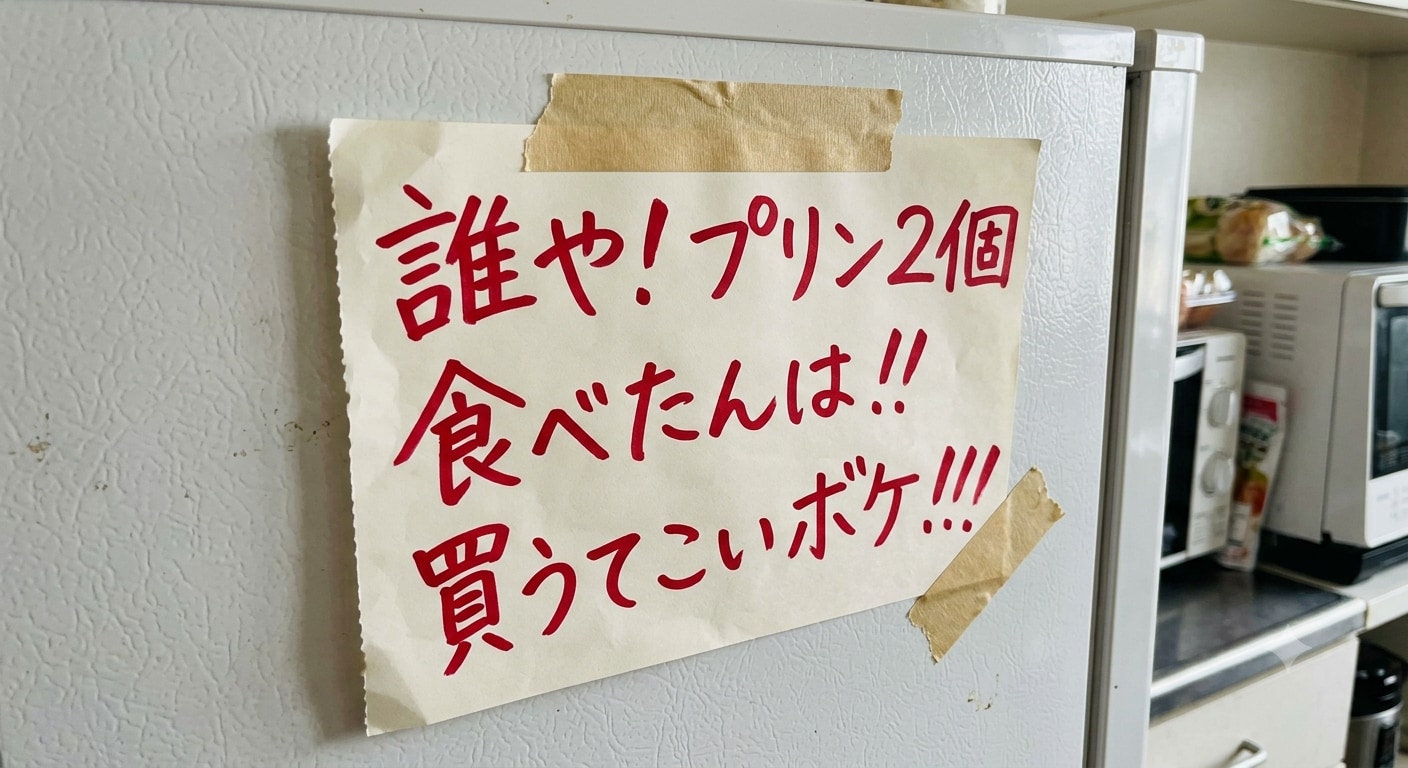 誰や!プリン2個
食べたんは!!
買うてこいボケ!!!